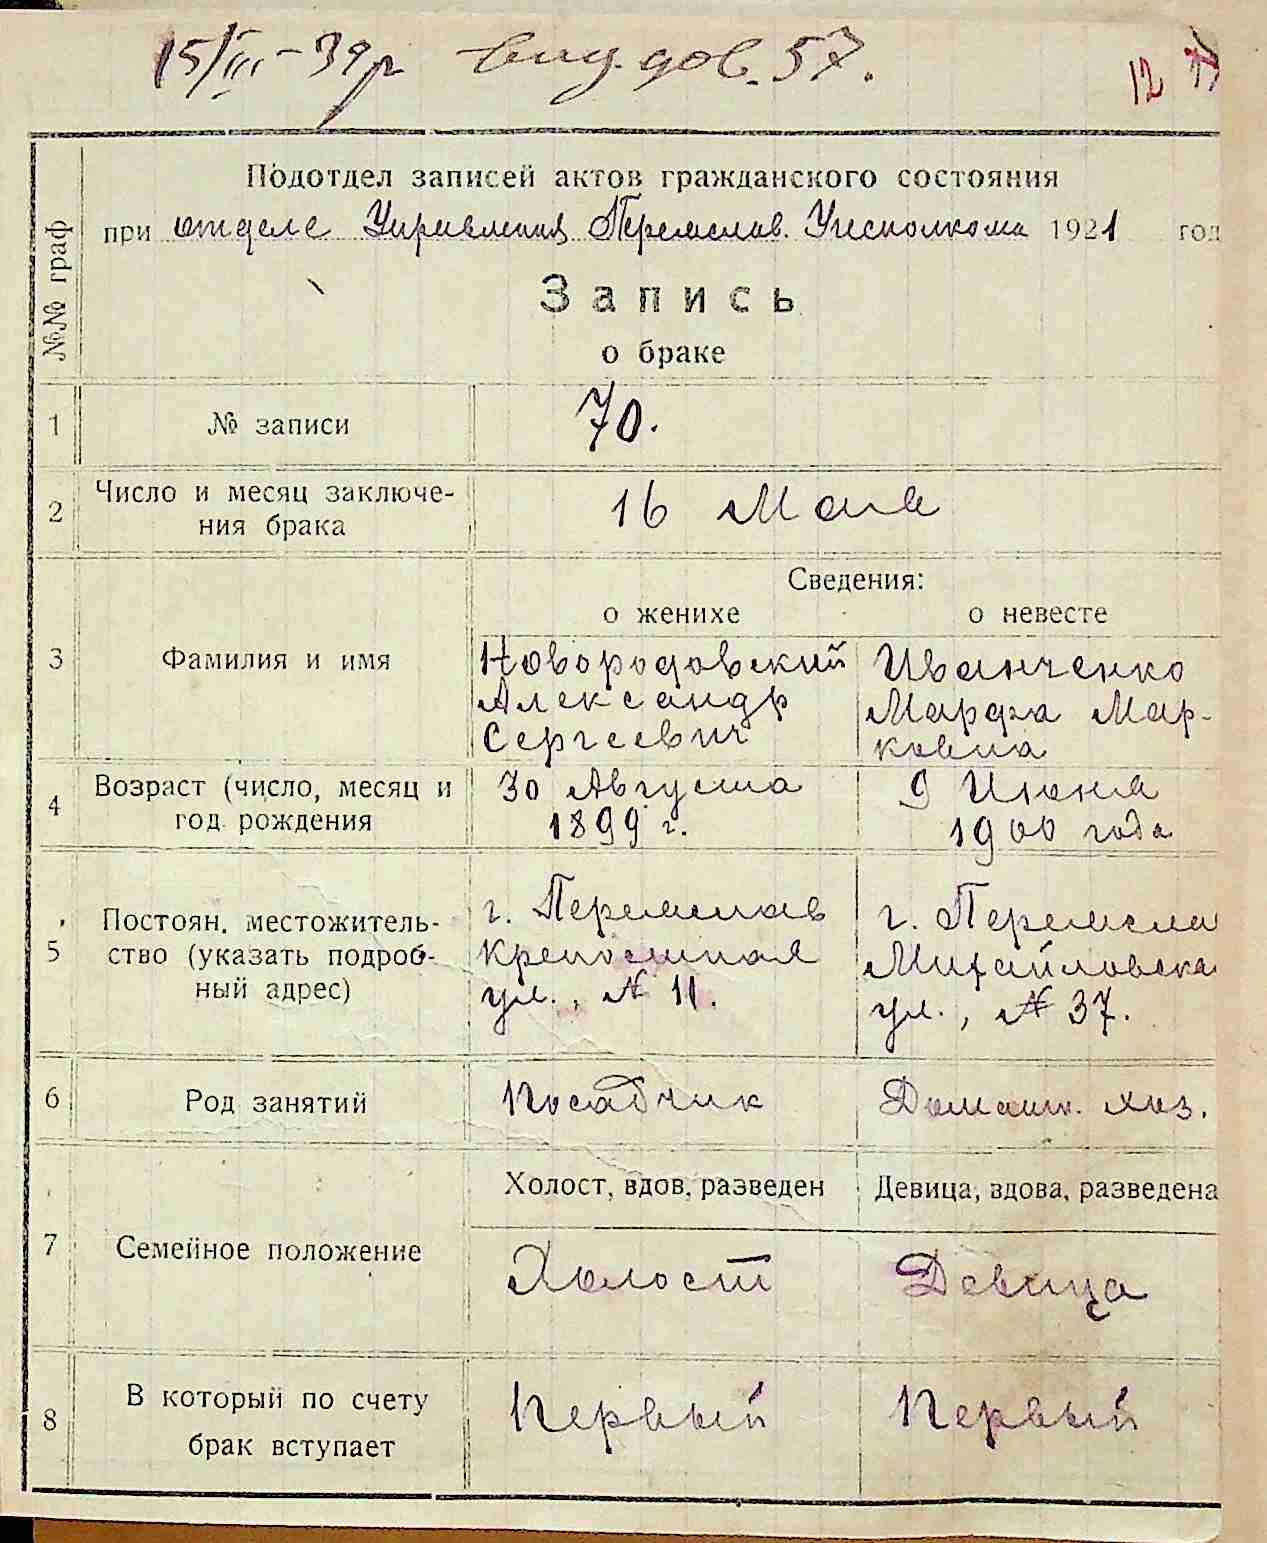 15/III-39р вид. дов. 57.
12
Подотдел записей актов гражданского состояния
при отделе Управления Переяслав. Уисполкома 1921 год
Запись
о браке
№№ граф
1 № записи 70.
2 Число и месяц заключе-
ния брака 16 Мая
Сведения:
о женихе о невесте
3 Фамилия и имя
Новородовский Иванченко
Александр Марфа Мар-
Сергеевич ковна
4 Возраст (число, месяц и 30 Августа 9 Июня
год рождения 1899 г. 1900 года
г. Переяслав г. Переясла
5 Постоян. местожитель-
ство (указать подроб- Крепостная Михайловска
ный адрес) ул., № 11. ул., № 37.
6 Род занятий Посадчик Домашн. хоз.
Холост, вдов, разведен Девица, вдова, разведена
7 Семейное положение
Холост Девица
8 В который по счету
брак вступает Первый Первый